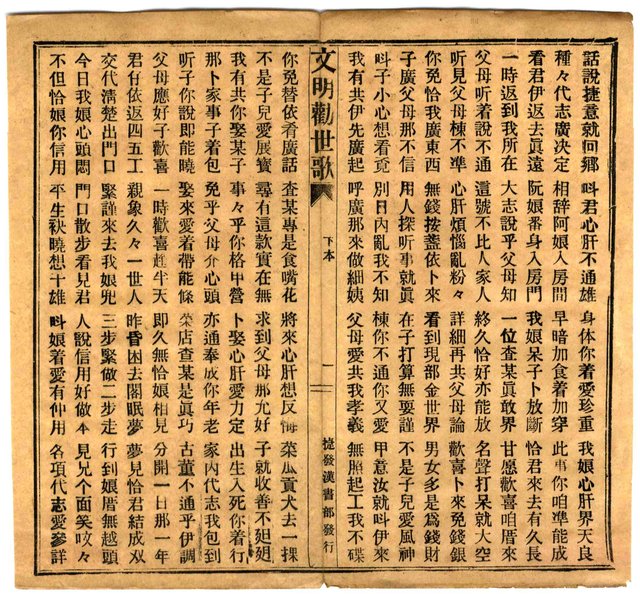 話說捷意就回鄉 叫君心肝不通雄 身体你着愛珍重 我娘心肝界天良
種々代志廣决定 相辞阿娘入房間 早暗加食着加穿 此事你咱準能成
看君伊返去眞遠 阮娘番身入房門 我娘呆子卜放斷 恰君來去有久長
一時返到我所在 大志說乎父母知 一位查某眞敢界 甘愿歡喜咱厝來
父母听着說不通 這號不比人家人 終久恰好亦能放 名聲打呆就大空
听見父母棟不準 心肝煩惱亂粉々 詳細再共父母論 歡喜卜來免錢銀
你免恰我廣東西 無錢按盞依卜來 看到現部金世界 男女多是爲錢財
子廣父母那不信 用人探听事就眞 在子打算無要謹 不是子兒愛風神
叫子小心想看覓 別日內亂我不知 棟你不通可又愛 甲意汝就叫伊來
我有共伊先廣起 呼廣那來做細姨 父母愛共我孝義 無照起工我不碟
文明勸世歌 下本 一 捷發漢書部發行
你免替依看廣話 查某專是食嘴花 將來心肝想反悔 菜瓜貢犬去一探
不是子兒愛展寳 尋有這款實在無 求到父母那允好 子就收善不𨑨迌
我有共你娶某子 事々乎你格甲營 卜娶心肝愛力定 出生入死你着行
那卜家事子着包 免乎父母介心頭 亦通奉成你年老 家內代志我包到
听子你說即能曉 娶來愛着帶能條 菜店查某是眞巧 古董不通乎伊調
父母應好子歡喜 一時歡喜趒半天 即久無恰娘相見 分開一日那一年
君仔依返四五工 親象久々一世人 昨昏困去閣眠夢 夢見恰君結成双
交代淸楚出門口 緊謹來去我娘兜 三步緊做二步走 行到娘厝無越頭
今日我娘心頭悶 門口散步看兒君 人說信用好做本 見兄个面笑咬々
不但恰娘你信用 平生袂曉想十雄 叫娘着愛有仲用 各項代志愛參詳